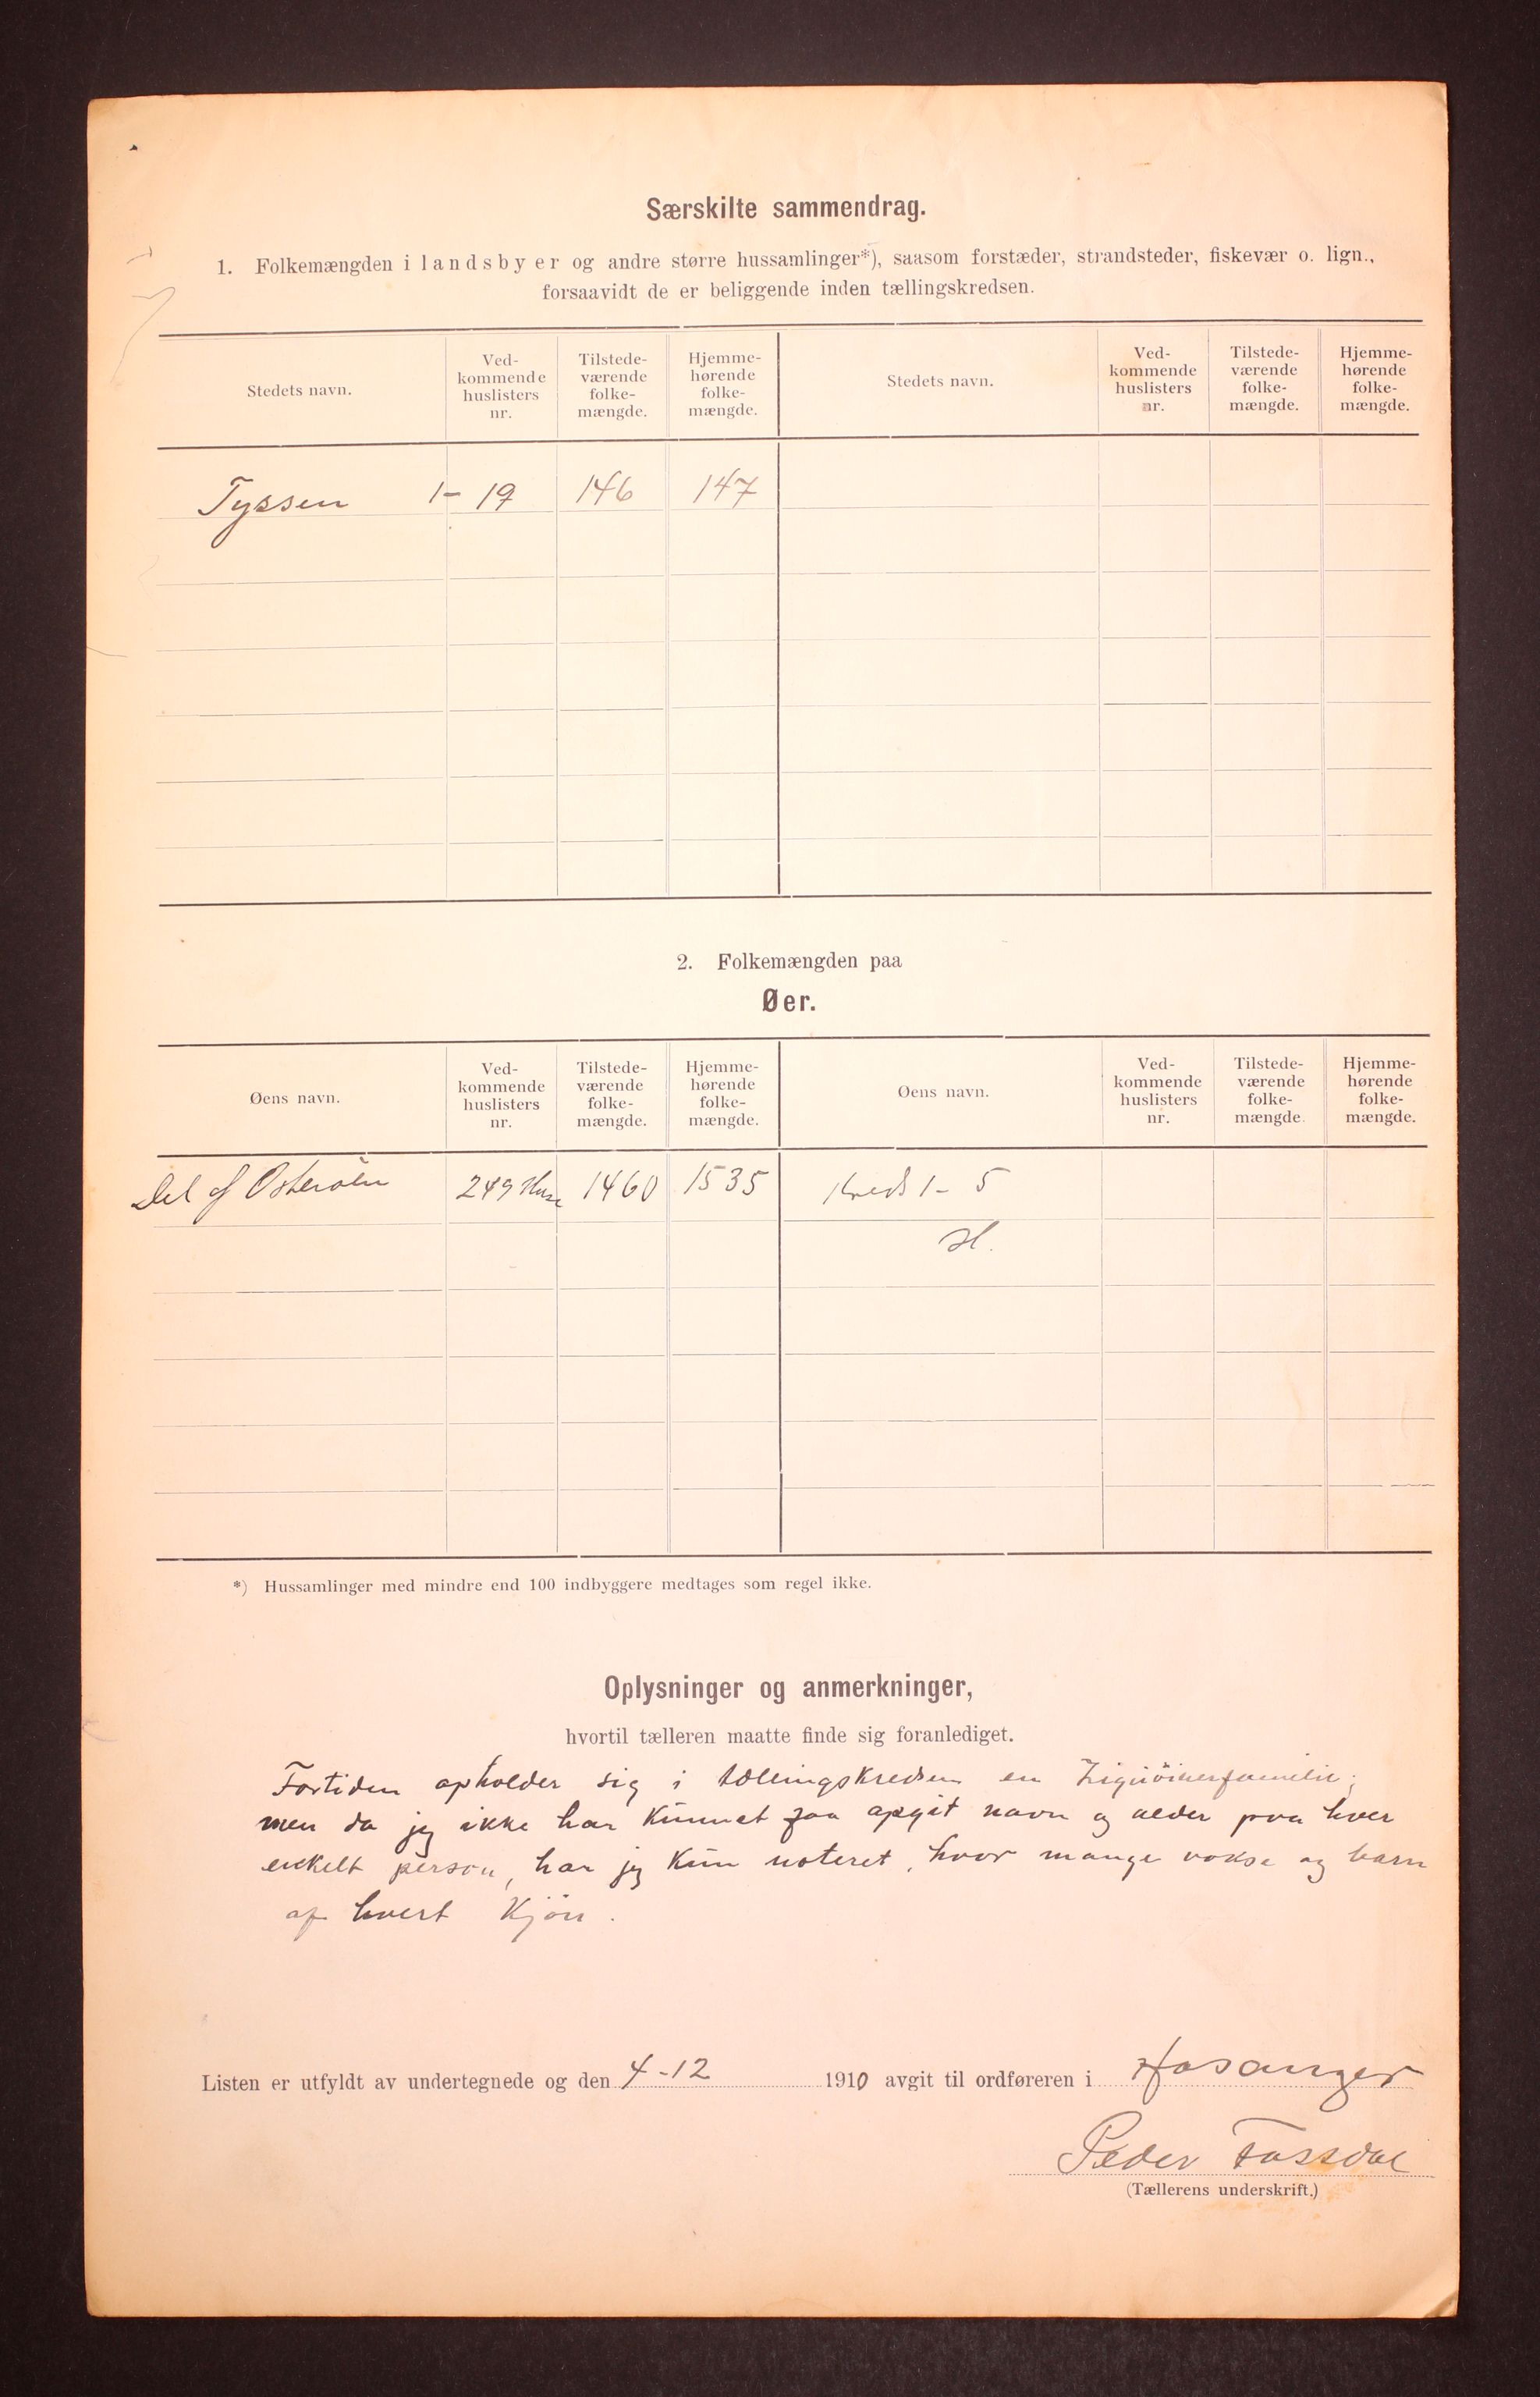 Særskilte sammendrag.
1. Folkemængden i landsbyer og andre større hussamlinger*), saasom forstæder, strandsteder, fiskevær o. lign.,
forsaavidt de er beliggende inden tællingskredsen.
Stedets navn. Ved-kommende huslisters nr. Tilstede-værende folke-mængde. Hjemme-hørende folke-mængde. Stedets navn. Ved-kommende huslisters nr. Tilstede-værende folke-mængde. Hjemme-hørende folke-mængde.
Tyssen 1- 19 146 147
2. Folkemængden paa
Øer.
Øens navn. Ved-kommende huslisters nr. Tilstede-værende folke-mængde. Hjemme-hørende folke-mængde. Øens navn. Ved-kommende huslisters nr. Tilstede-værende folke-mængde. Hjemme-hørende folke-mængde.
Del af Osterøen 249 Huse 1460 1535 Kreds 1- 5
H.
*) Hussamlinger med mindre end 100 indbyggere medtages som regel ikke.
Oplysninger og anmerkninger,
hvortil tælleren maatte finde sig foranlediget.
Fortiden opholder sig i tællingskredsen en Ziguöinerfamilie;
men da jeg ikke har kunnet faa opgit navn og alder paa hver
enkelt person, har jeg kun noteret, hvor mange vokse og barn
af hvert Kjön.
Listen er utfyldt av undertegnede og den 4-12 1910 avgit til ordføreren i Hosanger
Peder Fossdal
(Tællerens underskrift.)